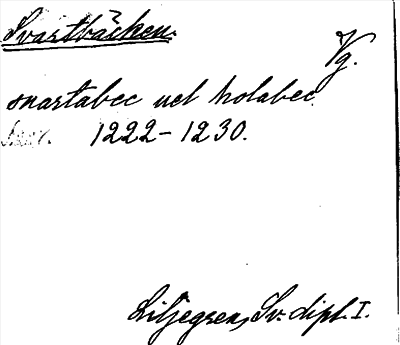 Svartbäcken.
Vg.
suartabec uel holabec.
1222-1230.
Liljegren, Sv. dipl. I.